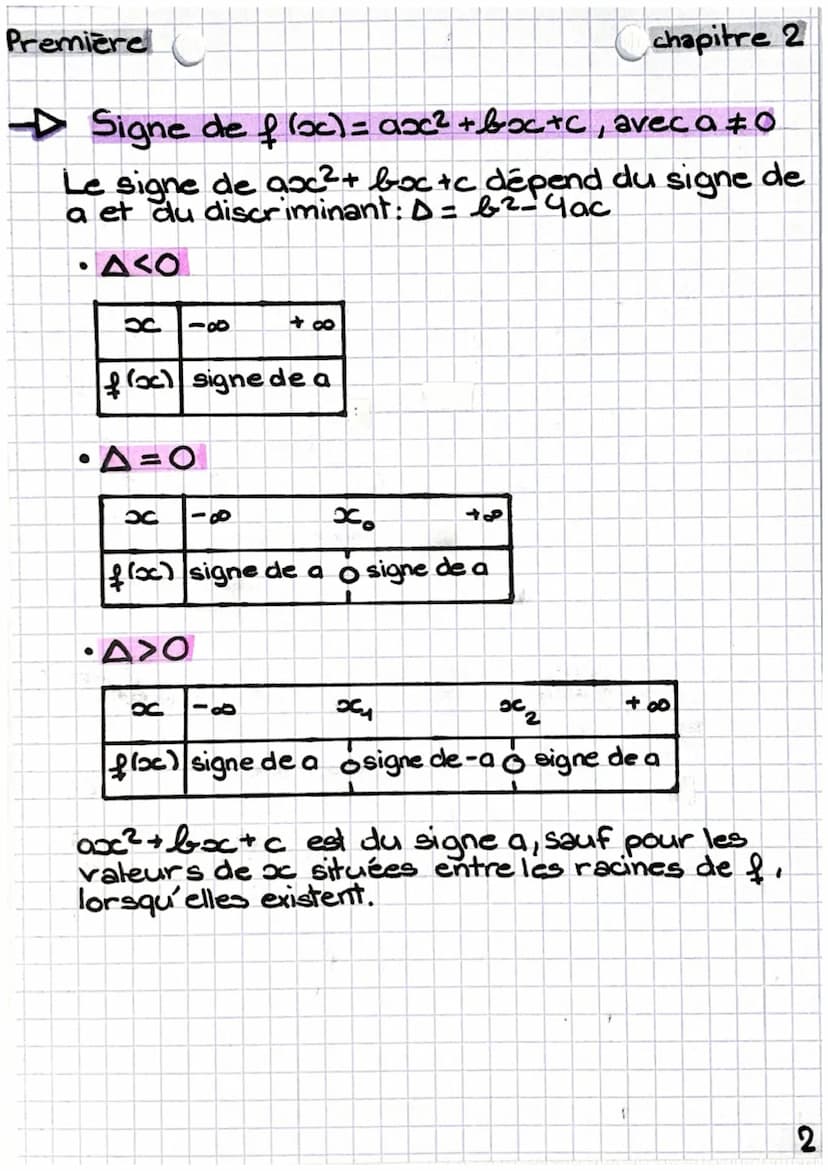 Première
chapitre 2
Signe de f(x) = ax² + bx + c, avec a ≠ 0
Le signe de ax² + bx + c dépend du signe de
a et du discriminant : Δ = b² - 4ac
• Δ < 0
x -∞ +∞
f(x) signe de a
• Δ = 0
x -∞ x₀ +∞
f(x) signe de a 0 signe de a
• Δ > 0
x -∞ x₁ x₂ +∞
f(x) signe de a 0 signe de -a 0 signe de a
ax² + bx + c est du signe a, sauf pour les
valeurs de x situées entre les racines de f,
lorsqu'elles existent.
2